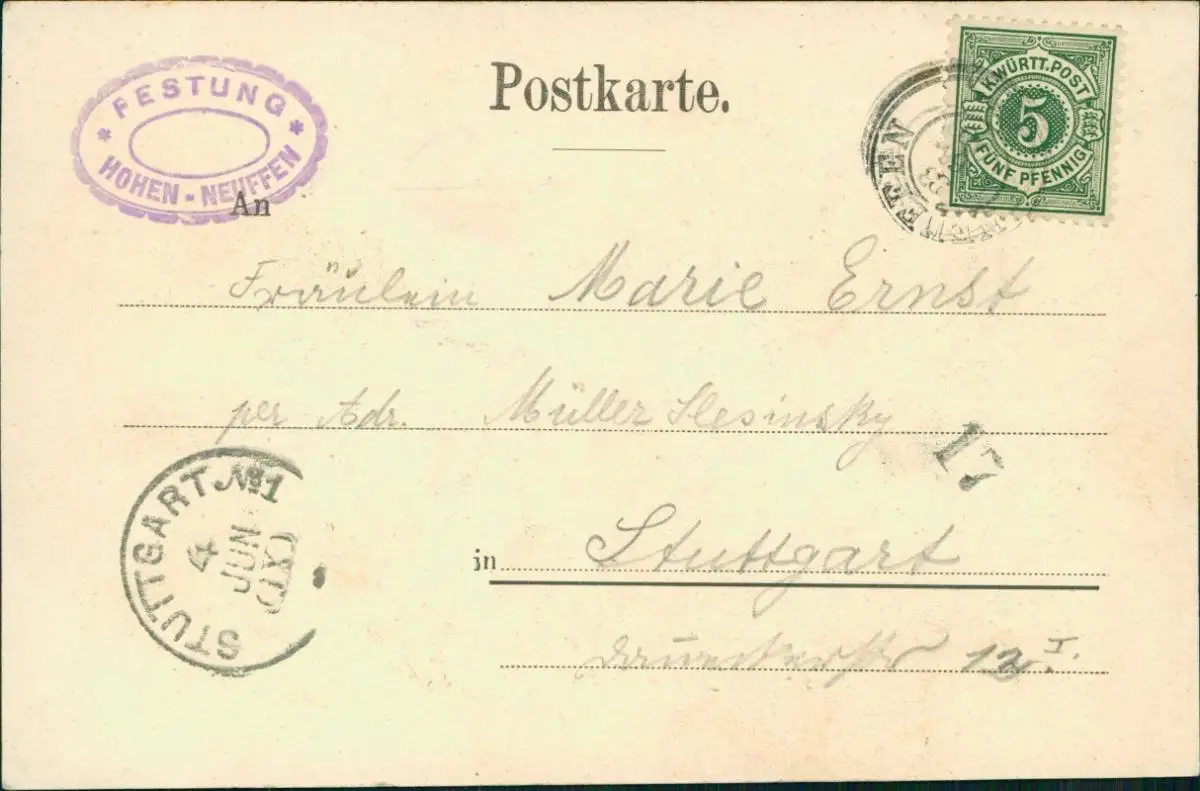 Postkarte.
* FESTUNG *
HOHEN-NEUFFEN
K.WÜRTT.POST
5
FÜNF PFENNIG
NEUFFEN
An
Fräulein Marie Ernst
per Adr. Müller Slesinsky
17
in Stuttgart
12 I.
STUTTGART No1
4
JUN
(XI)